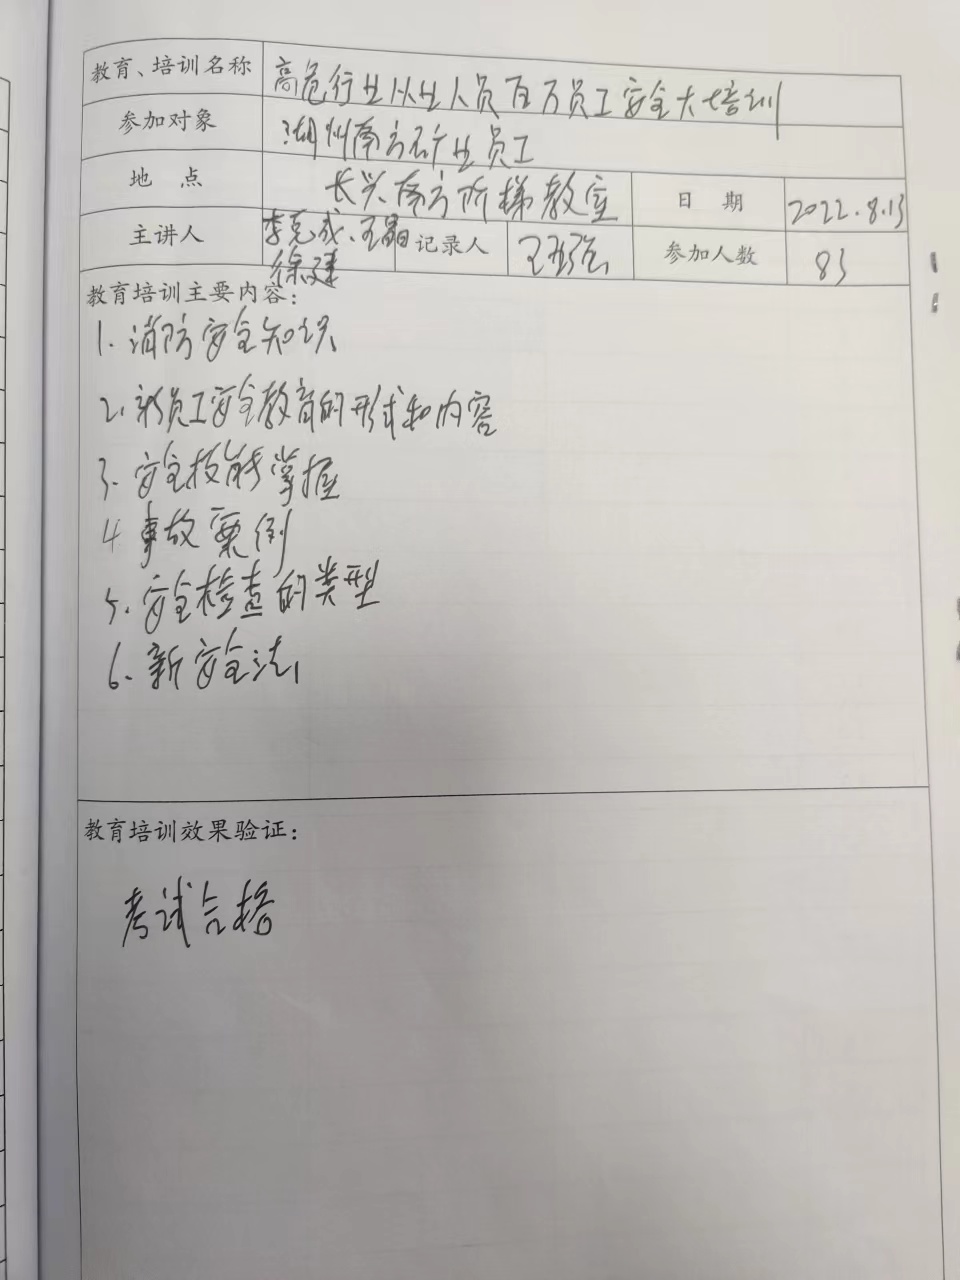 教育、培训名称 高危行业从业人员百万员工安全大培训
参加对象 湖州南方矿业员工
地 点 长兴南方阶梯教室 日 期 2022.8.13
主讲人 李克成、王晶 记录人 参加人数 83
徐建
教育培训主要内容：
1. 消防安全知识
2. 新员工安全教育的形式和内容
3. 安全技能掌握
4 事故案例
5. 安全检查的类型
6. 新安全法
教育培训效果验证：
考试合格